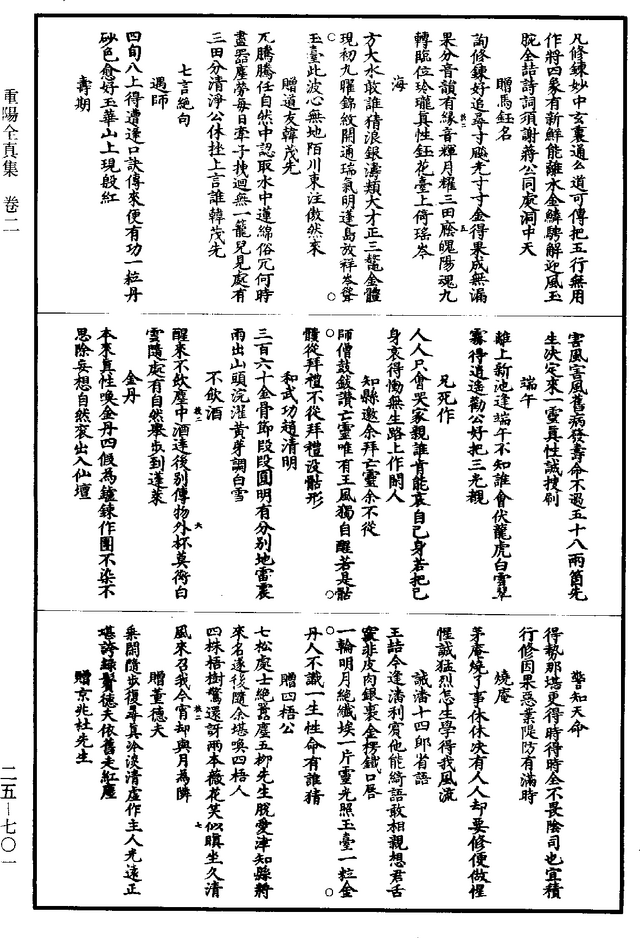 重陽全真集　卷二
二五—七〇一
凡修鍊妙中玄裏通么道可傳把五行無用
作將四象有新鮮能離水金鱗騁解迎風玉
腕全詰詩詞須謝蔣公同處洞中天
贈馬鈺名
詢修鍊好追尋寸颩光寸寸金得果成無漏
果分音韻有緣音輝月耀三田廕魄陽魂九
轉臨位玲瓏真性鈺花臺上倚瑤岑
海
方大水敢誰猜浪銀濤類大才正三鼇金體
現初九曜錦紋開通瑞氣明蓬島放祥岑聳
玉臺此波心無地陌川東注傲然來
贈道友韓茂先
兀騰騰任自然中認取水中蓮綿俗冗何時
盡囂塵夢每日牽子拽迴無一罷兒見處有
三田分清淨公休挫上言誰韓茂先
七言絕句
遇師
四旬八上得遭逢口訣傳來便有功一粒丹
砂色愈好玉華山上現殷紅
壽期
害風害風舊病發壽命不過五十八兩箇先
生決定來一靈真性誠搜刷
端午
離上新池逢端午不知誰會伏龍虎白雲翠
霧得逍遙勸公好把三光覷
兄死作
人人只會哭家親誰肯能哀自己身若把己
身哀得慟無生路上作閑人
知縣邀余拜亡靈余不從
師僧鼓鈸讚亡靈唯有王風獨自醒若是骷
髏從拜禮不從拜禮沒骷形
和武功趙清明
三百六十金骨節段段圓明有分別地雷震
雨出山頭浣濯黄芽調白雪
不飲酒
醒來不飲塵中酒達後別傳物外杯莫衒白
雲隨處有自然舉步到蓬萊
金丹
本來真性喚金丹四假為爐鍊作團不染不
思除妄想自然袞出入仙壇
警知天命
得勢那堪更得時得時全不畏陰司也宜積
行修因果惡業隄防有滿時
燒庵
茅庵燒了事休休決有人人却要修便做惺
惺誠猛烈怎生學得我風流
誡潘十四郎省語
王喆今逢潘利賓他能綺語敢相親想君舌
竅非皮肉銀裹金楞鐵口唇
一輪明月絕纖埃一片靈光照玉臺一粒金
丹人不識一生性命有誰猜
贈四梧公
七松處士絕囂塵五柳先生脫愛津知縣將
來名遂後隨余堪喚四梧人
四株梧樹驚還訝兩本薇花笑似瞋坐久清
風來召我今宵却與月為隣
贈董德夫
乘閑隨步復尋真冷淡清虛作主人光遠正
堪誇綠鬢德夫依舊走紅塵
贈京兆杜先生